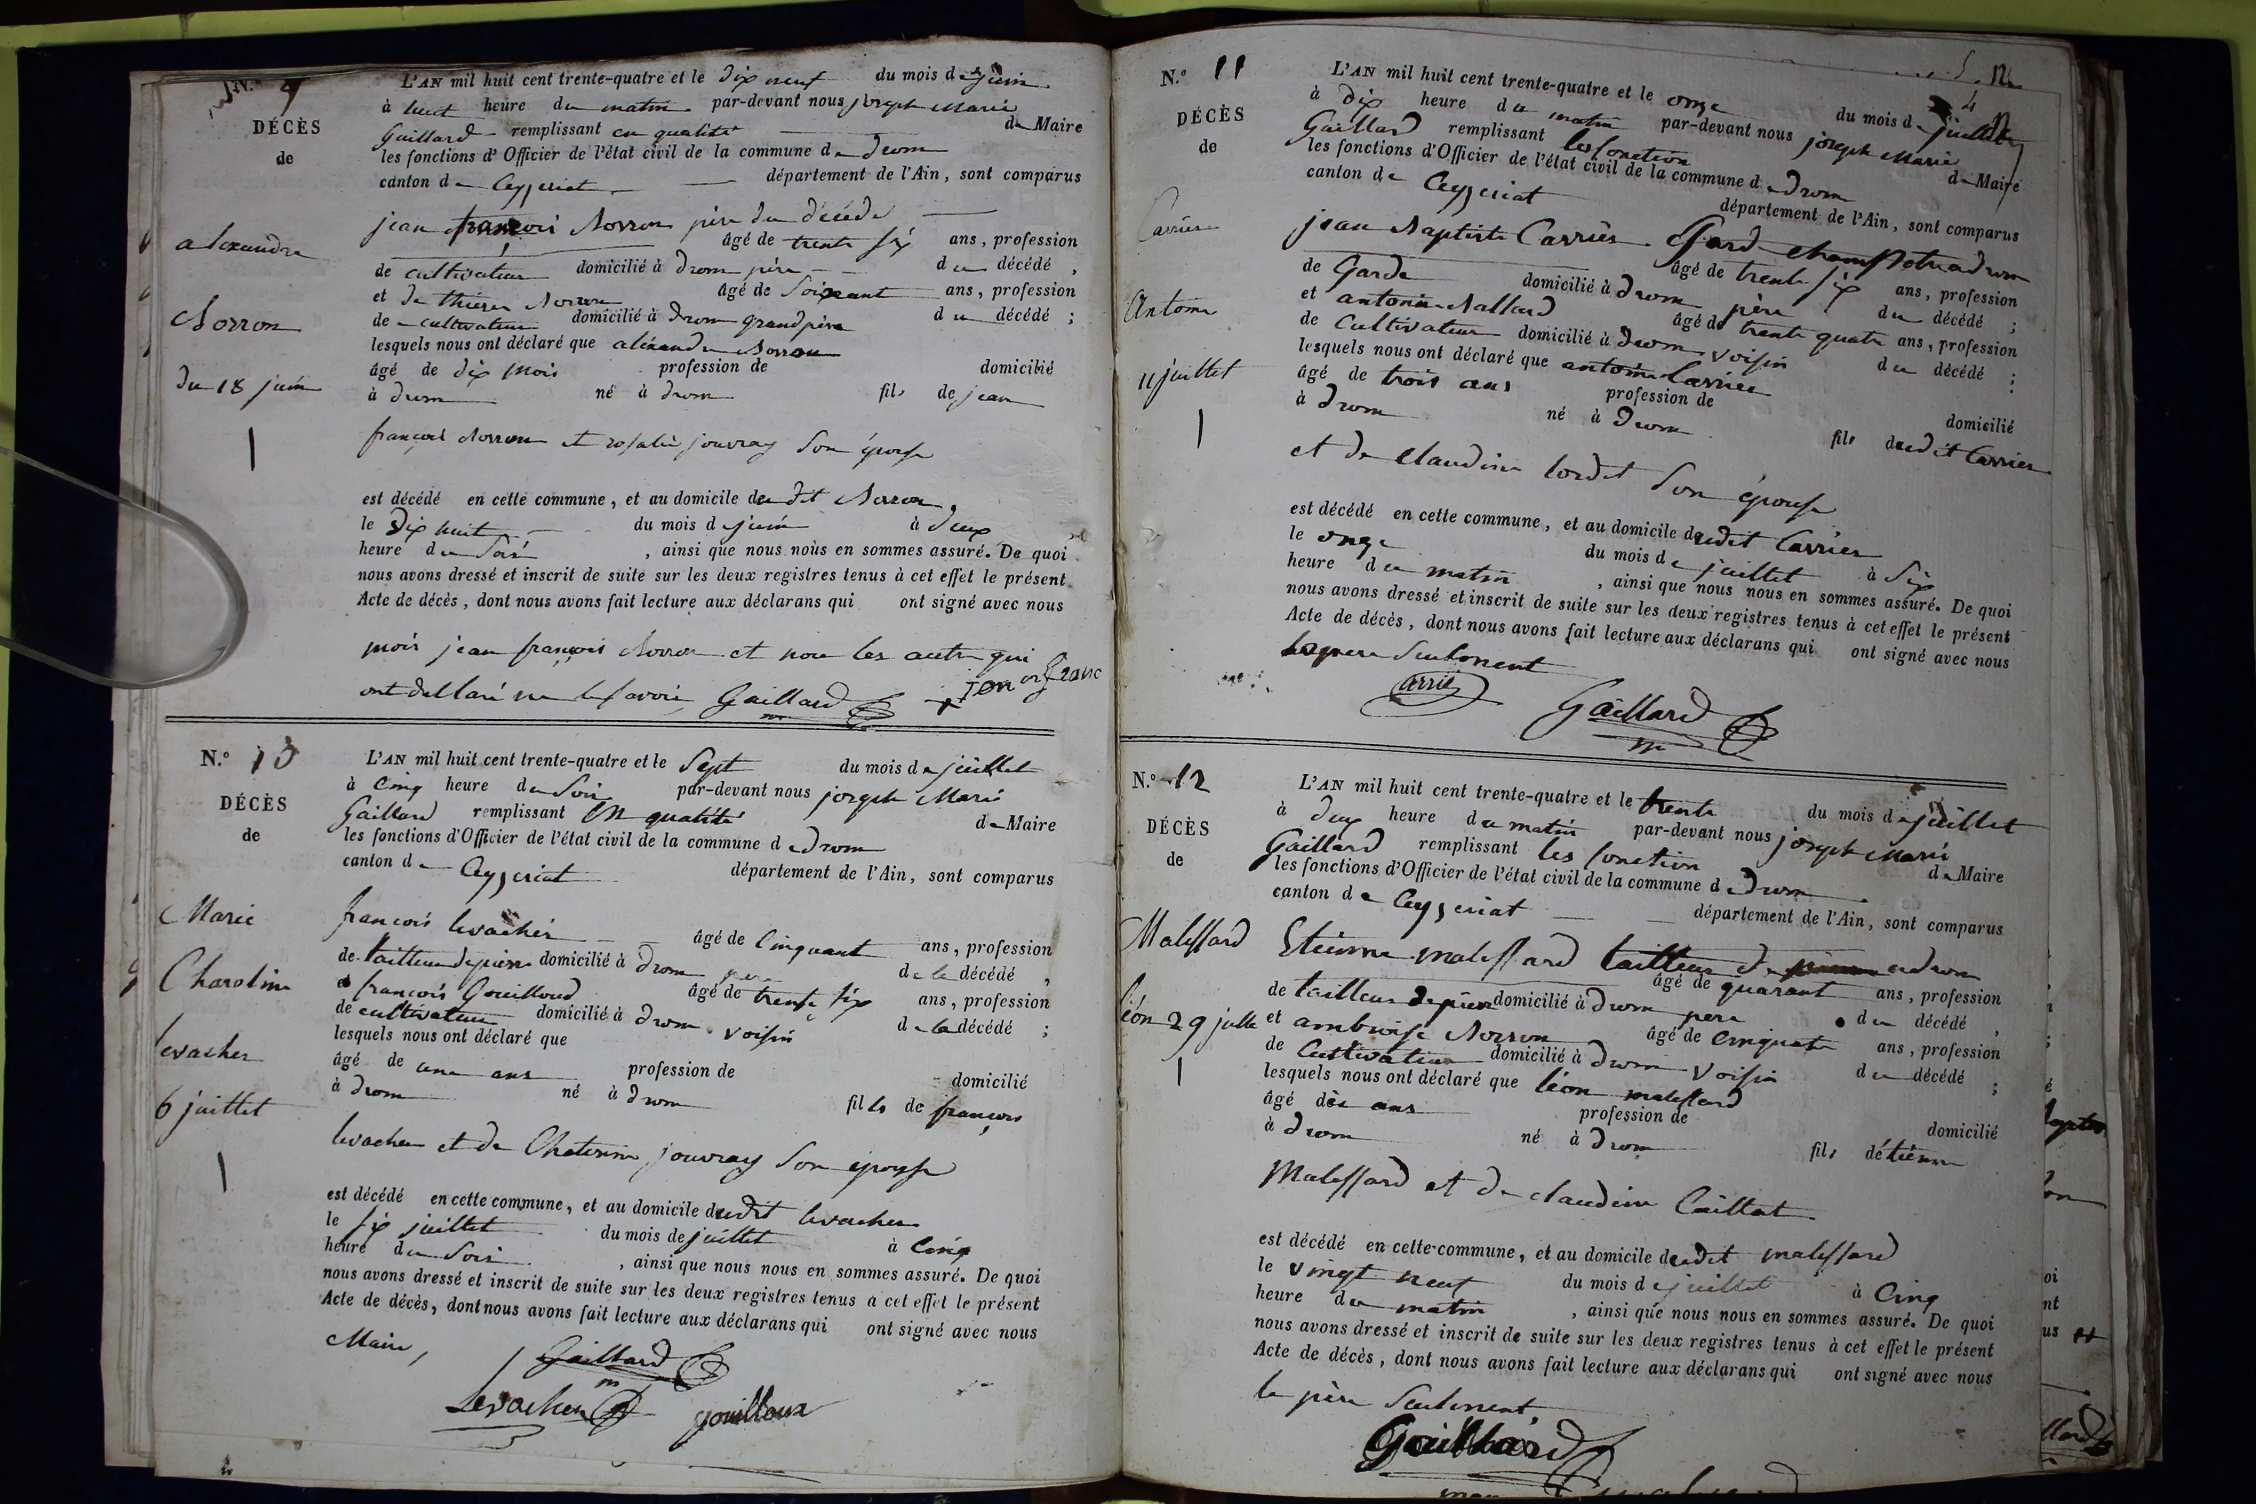 N.° 9
L'AN mil huit cent trente-quatre et le dix neuf du mois de juin
à huit heure du matin par-devant nous joseph Marie
Gaillard remplissant en qualité de Maire
DÉCÈS
les fonctions d'Officier de l'état civil de la commune de drom
de
canton de Ceyzeriat département de l'Ain, sont comparus
jean françois Norron père du décédé
âgé de trente six ans, profession
alexandre
de cultivateur domicilié à drom père du décédé,
et de Norron âgé de soixant ans, profession
Norron
de cultivateur domicilié à drom grandpère du décédé;
lesquels nous ont déclaré que alexandre Norron
du 18 juin
âgé de dix mois profession de domicilié
à drom né à drom fils de jean
françois Norron et rosalie jouvray son épouse
est décédé en cette commune, et au domicile du dit Norron,
le dix huit du mois de juin à deux
heure du soir, ainsi que nous nous en sommes assuré. De quoi
nous avons dressé et inscrit de suite sur les deux registres tenus à cet effet le présent
Acte de décès, dont nous avons fait lecture aux déclarans qui ont signé avec nous
moir jean françois Norron et non les autre qui
ont dellaré ne le savoir Gaillard
N.° 10
L'AN mil huit cent trente-quatre et le sept du mois de juillet
à cinq heure du soir par-devant nous joseph Marie
DÉCÈS
Gaillard remplissant en qualité de Maire
de
les fonctions d'Officier de l'état civil de la commune de drom
canton de Ceyzeriat département de l'Ain, sont comparus
Marie
françois levacher âgé de cinquant ans, profession
de tailleur de pierre domicilié à drom père de la décédé,
Charoline
et françois Gouilloud âgé de trente six ans, profession
de cultivateur domicilié à drom voisin de la décédé;
levacher
lesquels nous ont déclaré que
âgé de une ans profession de domicilié
6 juillet
à drom né à drom fille de françois
levacher et de Chaterine jouvray son épouse
est décédé en cette commune, et au domicile dudit levacher
le six juillet du mois de juillet à cinq
heure du soir, ainsi que nous nous en sommes assuré. De quoi
nous avons dressé et inscrit de suite sur les deux registres tenus à cet effet le présent
Acte de décès, dont nous avons fait lecture aux déclarans qui ont signé avec nous
Maire,
Gaillard
m
Levacher gouilloux
N.° 11
L'AN mil huit cent trente-quatre et le onze du mois de juillet
à dix heure du matin par-devant nous joseph Marie
DÉCÈS
Gaillard remplissant les fonction de Maire
de
les fonctions d'Officier de l'état civil de la commune de drom
canton de Ceyzeriat département de l'Ain, sont comparus
Carrier
jean Baptiste Carrier Gard champetre a drom
âgé de trente six ans, profession
de Garde domicilié à drom père du décédé;
Antoine
et antoine Nallard âgé de trente quatre ans, profession
de Cultivateur domicilié à drom voisin du décédé;
11 juillet
lesquels nous ont déclaré que antoine Carrier
âgé de trois ans profession de domicilié
à drom né à drom fils dudit Carrier
et de claudine lordet son épouse
est décédé en cette commune, et au domicile dudit Carrier
le onze du mois de juillet à six
heure du matin, ainsi que nous nous en sommes assuré. De quoi
nous avons dressé et inscrit de suite sur les deux registres tenus à cet effet le présent
Acte de décès, dont nous avons fait lecture aux déclarans qui ont signé avec nous
le pere seulement
Carrié
Gaillard
m
N.° 12
L'AN mil huit cent trente-quatre et le trente du mois de juillet
à deux heure du matin par-devant nous joseph Marie
DÉCÈS
Gaillard remplissant les fonction de Maire
de
les fonctions d'Officier de l'état civil de la commune de drom
canton de Ceyzeriat département de l'Ain, sont comparus
Malessard
Etienne malessard tailleur de a drom
âgé de quarant ans, profession
de tailleur de pierre domicilié à drom pere du décédé,
léon 29 julle
et ambroise Norron âgé de cinquate ans, profession
de Cultivateur domicilié à drom voisin du décédé;
lesquels nous ont déclaré que léon malessard
âgé dès ans profession de domicilié
à drom né à drom fils détienne
Malessard et de claudine Caillat
est décédé en cette commune, et au domicile dudit malessard
le vingt neuf du mois de juillet à cinq
heure du matin, ainsi que nous nous en sommes assuré. De quoi
nous avons dressé et inscrit de suite sur les deux registres tenus à cet effet le présent
Acte de décès, dont nous avons fait lecture aux déclarans qui ont signé avec nous
le père seulement
Gaillard